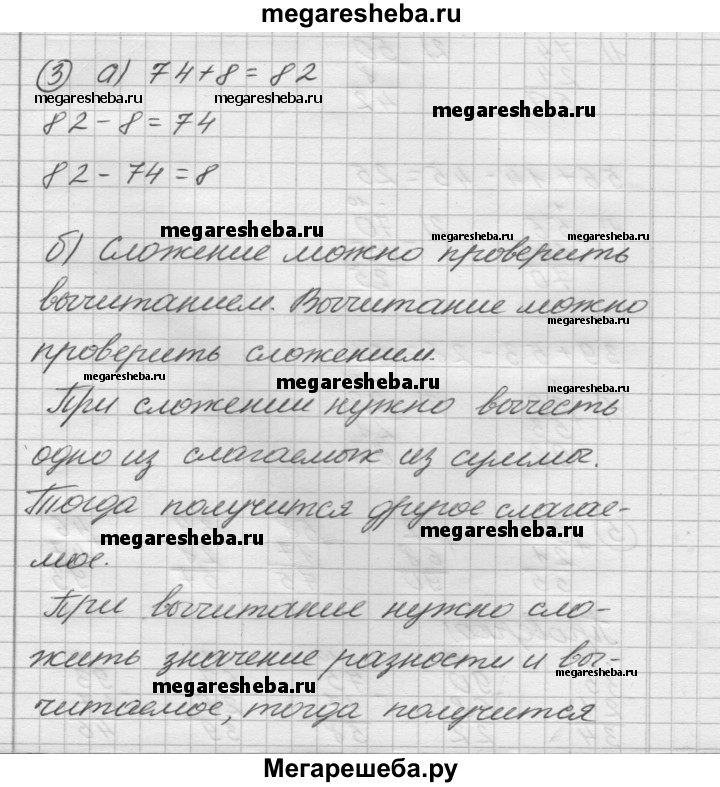 megaresheba.ru
③ а) 74+8=82
megaresheba.ru megaresheba.ru megaresheba.ru
82-8=74
82-74=8
megaresheba.ru megaresheba.ru megaresheba.ru
б) Сложение можно проверить
вычитанием. Вычитание можно
megaresheba.ru
проверить сложением.
megaresheba.ru megaresheba.ru megaresheba.ru
При сложении нужно вычесть
одно из слагаемых из суммы.
Тогда получится другое слагае-
megaresheba.ru megaresheba.ru
мое.
При вычитание нужно сло-
жить значение разности и вы-
megaresheba.ru megaresheba.ru
читаемое, тогда получится
Мегарешеба.ру